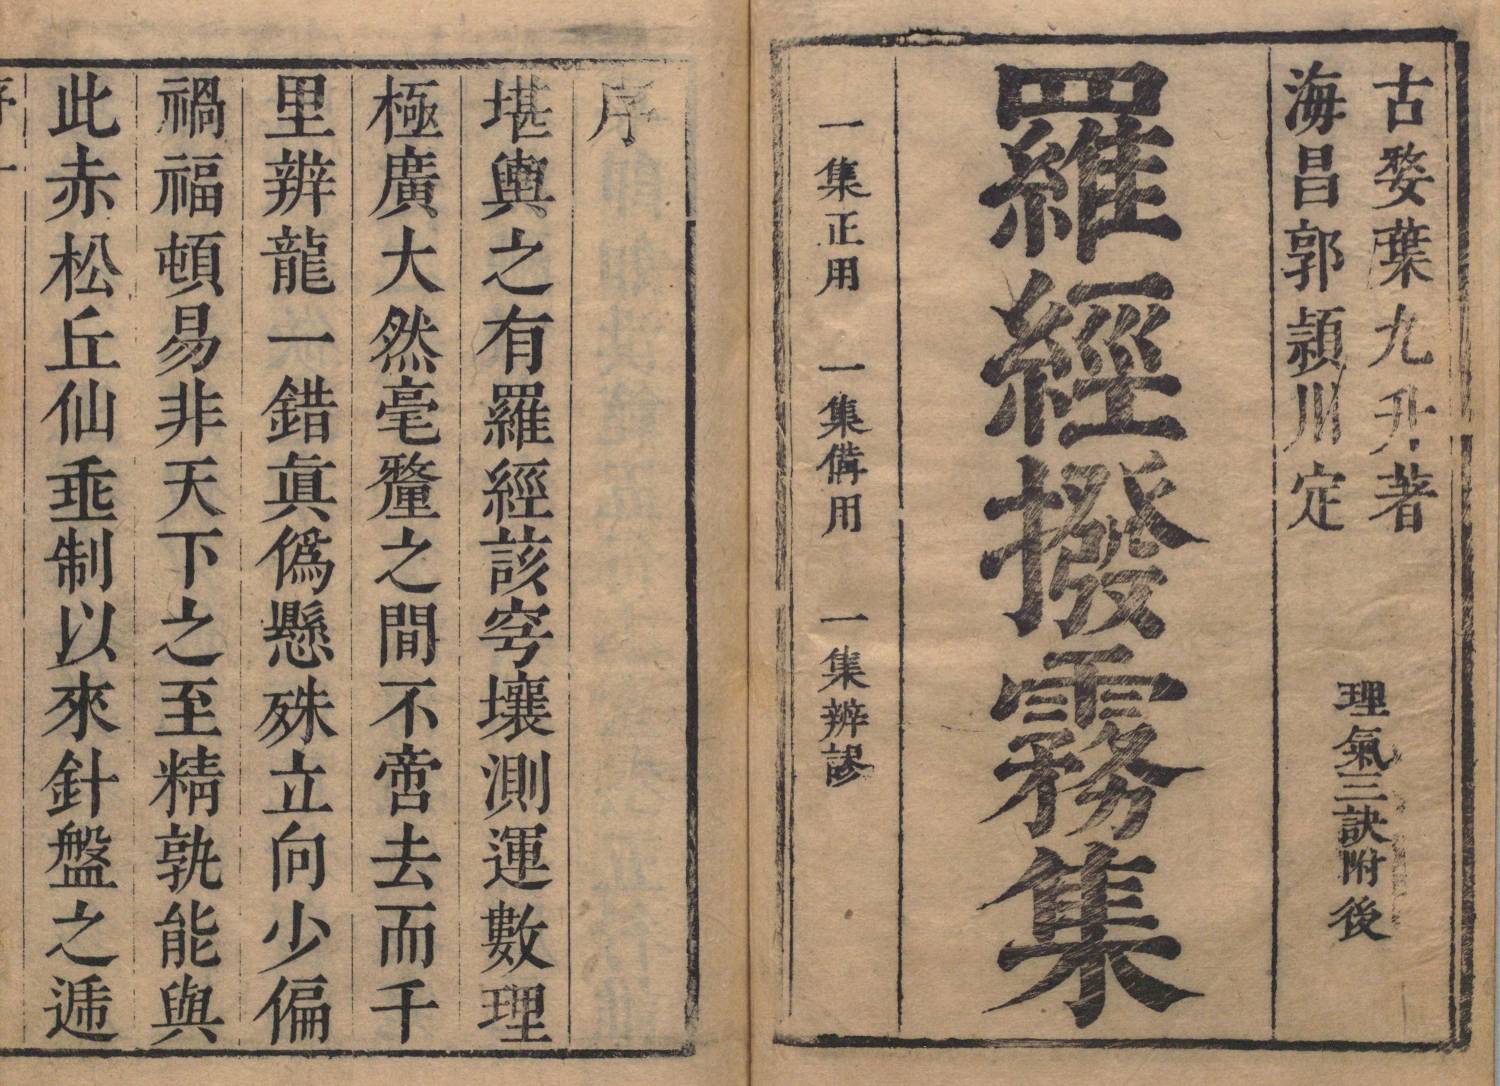 古婺葉九升著
海昌郭穎川定
理氣三訣附後
羅經撥霧集
一集正用 一集備用 一集辨謬
序
堪輿之有羅經該穹壤測運數理
極廣大然毫釐之間不啻去而千
里辨龍一錯眞僞懸殊立向少偏
禍福頓易非天下之至精孰能與
此赤松丘仙垂制以來針盤之遞
序 一